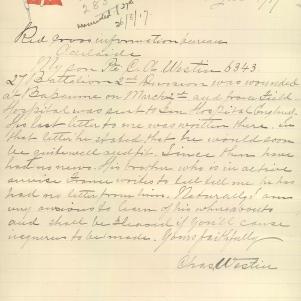 wounded
26/3/17
Red Cross information bureau
Adelaide
My son Pt C. A. Westin 6343
27 Battalion 2nd Division was wounded
at Bapaume on March and from Field
Hospital was sent to Hospital England
His last letter to me was written there. in
that letter he stated that he would soon
be quite well and fit. Since then have
had no news. His brother who is in active
service France writes to me he has
had no letter from him. Naturally I am
very anxious to learn of his whereabouts
and shall be pleased if you'll cause
inquiries to be made. Yours faithfully
Chas Westin